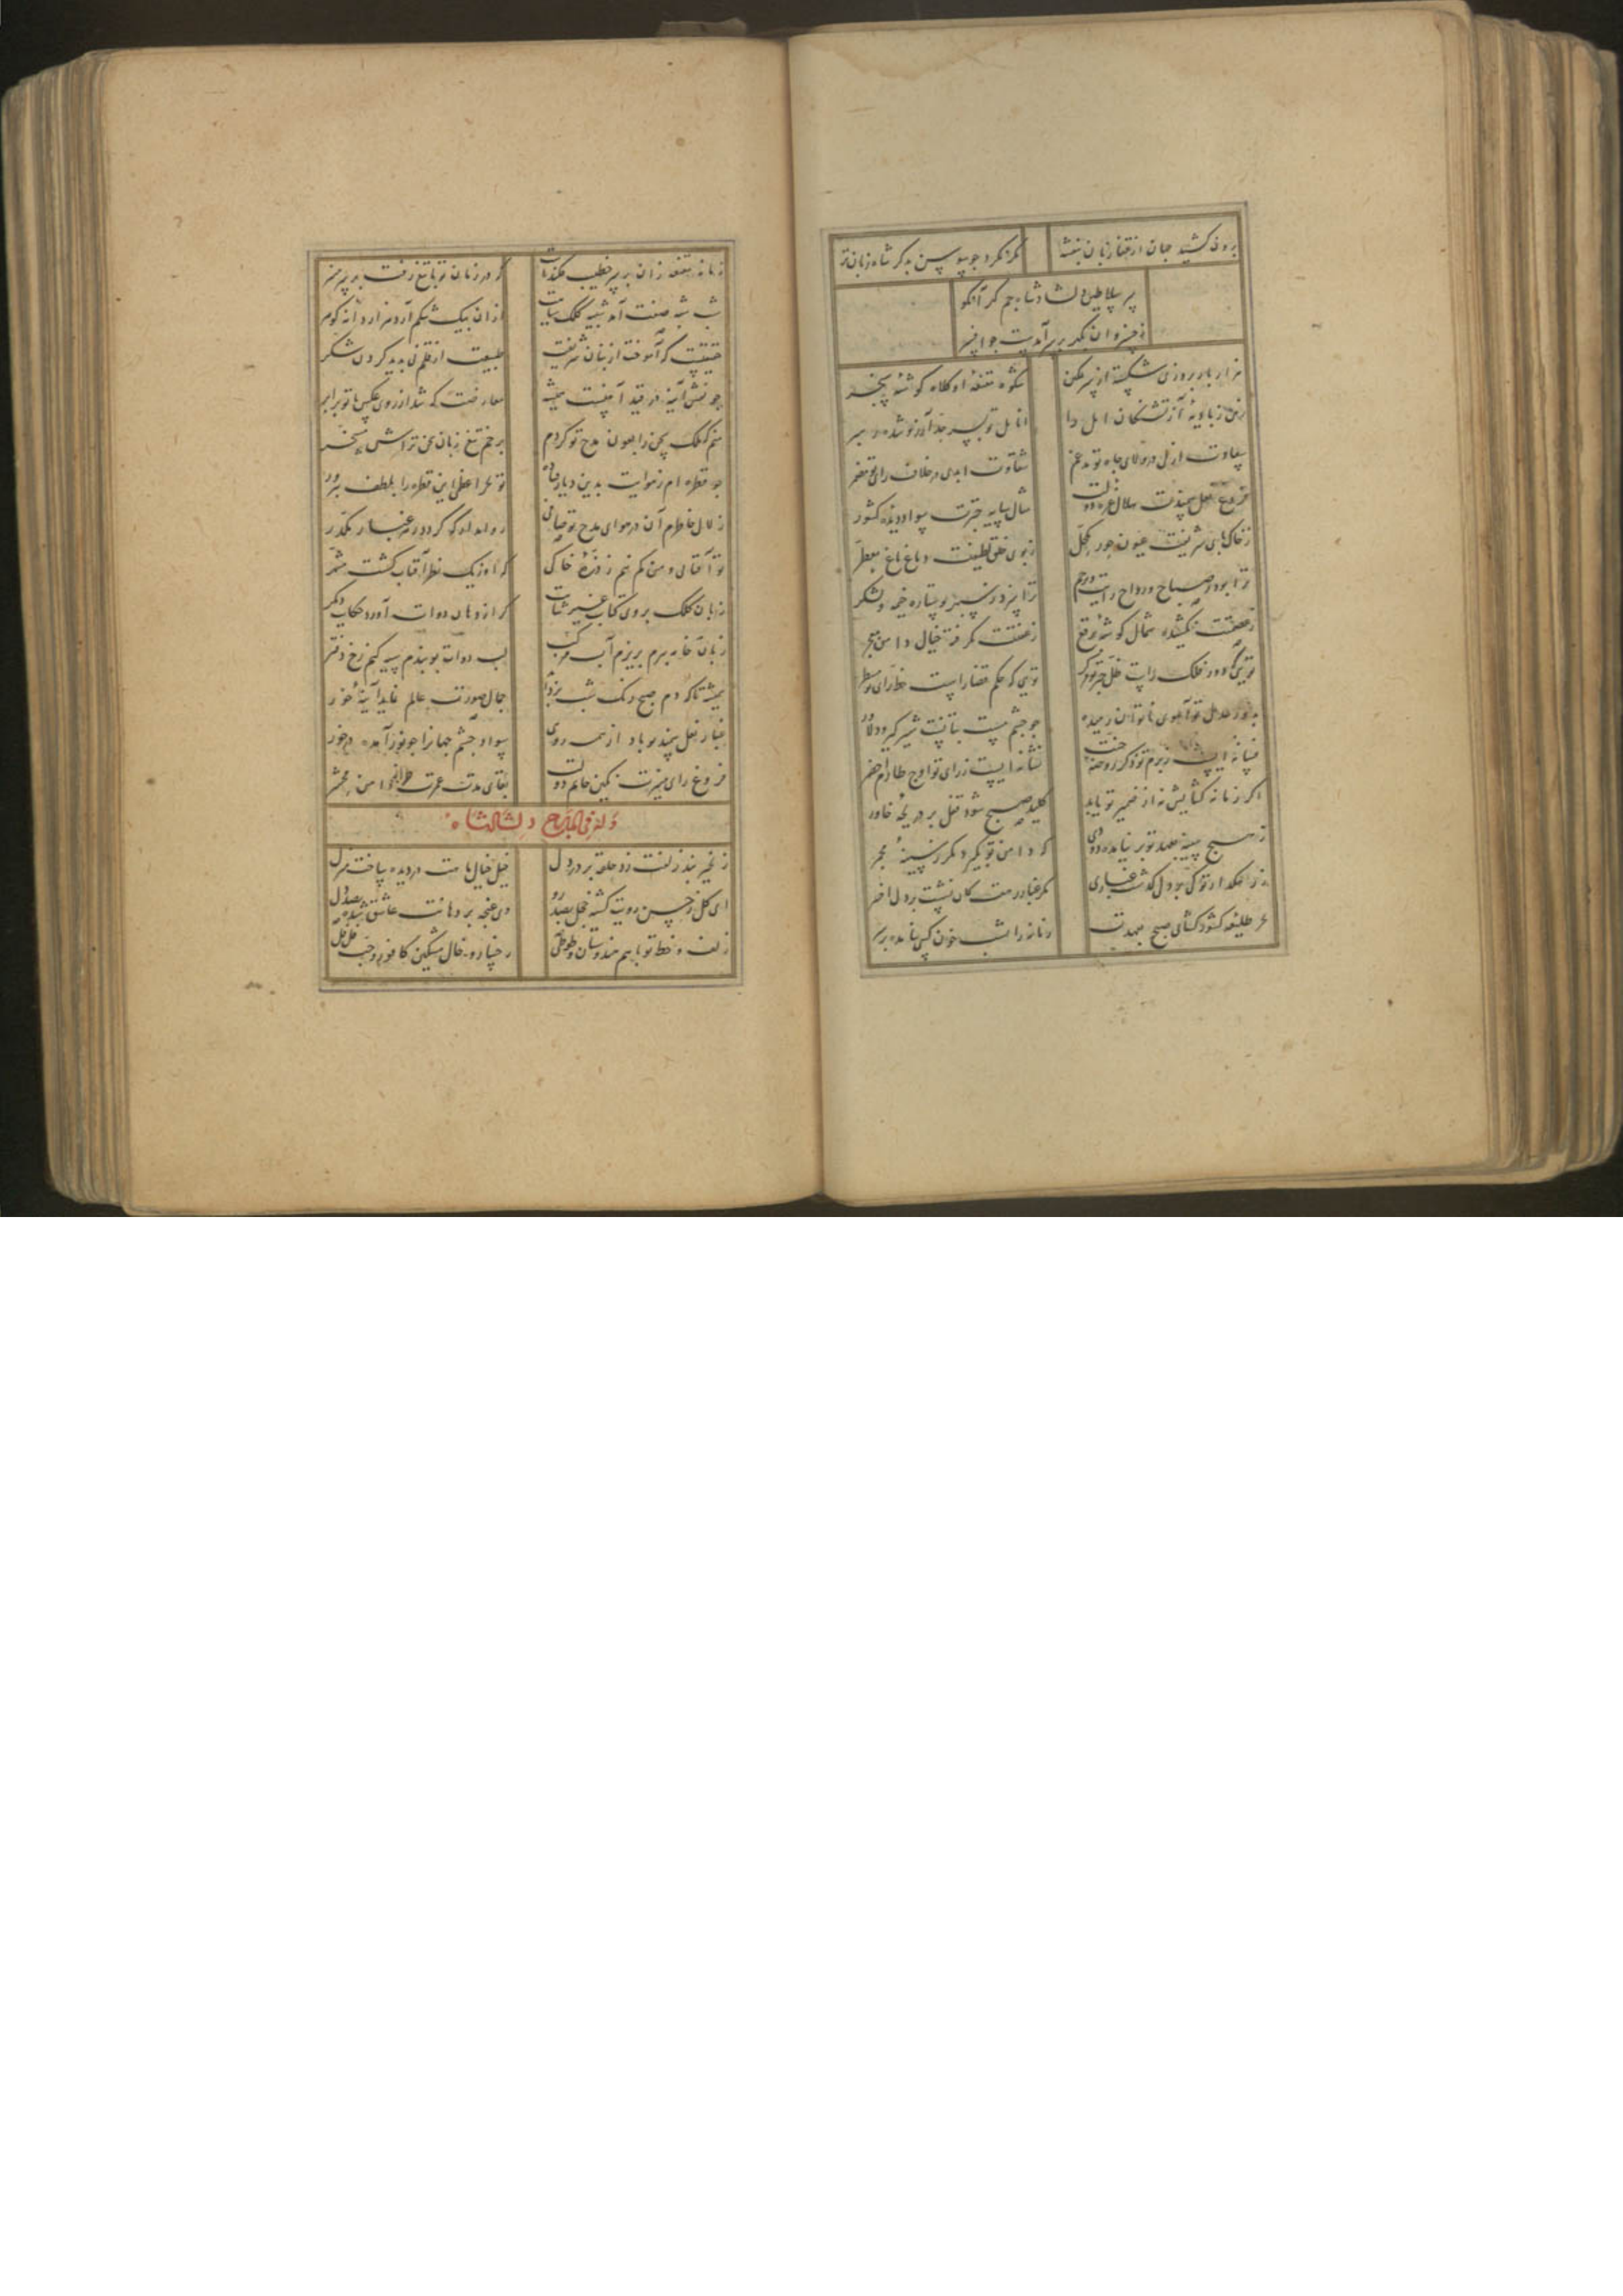 برون کشید جهان از قفا زبان بنفشه مگر نکرد چو سوسن بذکر شاه زبان تر
سر سلاطین دلشاد شاه جم کدر آنکو
ز خسروان بکمر بر سر آمدست چو افسر
هزار بار بروزی شکسته از سر تمکین شکوه مقنعهٔ او کلاه گوشهٔ سنجر
زهی ز بادیهٔ آز تشنگان امل را انامل تو بسر حد آرزو شده رهبر
سعادت ازلی در ولای جاه تو مدغم شقاوت ابدی در خلاف رای تو مضمر
فروغ لعل سمندت هلال غره دولت مثال سایه چترت سواد دیده کشور
ز خاک پای شریفت عیون حور مکحل ز بوی خلق لطیفت دماغ باغ معطر
ترا بود ز صباح و رواح رایت و پرچم ترا سزد ز سپهر و ستاره خیمه و لشکر
ز عصمتت نکشیده شمال گوشهٔ برقع ز عفتت نگرفته خیال دامن معجر
تویی که دور فلک راست ظل چتر تو مرکز تویی که حکم قضا راست خط رای تو مسطر
بدور عدل تو آهوی ناتوان رمیده چو چشم مست بتانست شیرگیر و دلاور
فسانه ایست ز بزم تو ذکر روضه جنت نشانه ایست ز رای تو اوج طارم اخضر
اگر زمانه گشایش نه از ضمیر تو یابد کلید صبح شود قفل بر دریچهٔ خاور
ز صبح سینه بعهد تو بر نیامده دودی که دامن تو نگیرد مگر ز سینهٔ مجمر
نه رهگذار تو کس را بدل گذشت غباری مگر غبار رهت کان نشست بر دل اخضر
خلیفه کشور گشای صبح بعهدت زمانه را شب خون کسی نمانده بر سر
زمانه مقنعه زان بر سر خطیب فکندست که در زمان تو با تیغ رفت بر سر منبر
شب شبه صفت آمد شبیه کلک سیاهت از آن بیک شکم آرد هزار دانه گوهر
حقیقتست که آموخت از بنان شریفت طبیعت از قلم نی پدید کردن شکر
چو نقش آینه در قید آهنست همیشه معارضت که شد از روی عکس با تو برابر
منم که ملک سخن را بعون مدح تو کردم بزخم تیغ زبان سخن تراش مسخر
چو قطره ام ز هوایت بدین دیار فتاده تو بحر اعظمی این قطره را بلطف بپرور
زلال خاطرم آن در هوای مدح تو صافی روا مدار که گردد ز هر غبار مکدر
تو آفتابی و من کم نیم ز ذرهٔ خاکی که او ز یک نظر آفتاب گشت مشهر
زبان کلک بروی کتاب غیر ثنایت گر از دهان دوات آورد حکایت دیگر
زبان خامه ببرم بریزم آب مرکب لب دوات بدوزم سیه کنم رخ دفتر
همیشه تا که دم صبح زنگ شب بزداید جمال صورت عالم نماید آینهٔ خور
غبار نعل سمند تو باد از همه روی سواد چشم جهان را چو نور آمده در خور
فروغ رای منیرت نگین خاتم دولت بقای مدت عمرت طراز دامن محشر
وله فی المدح دلشادشاه
زنجیر بند زلفت زد حلقه بر در دل خیل خیال ماهت در دیده ساخت منزل
ای گل ز حسن رویت گشته خجل بصد رو وی غنچه بر دهانت عاشق شده بصد دل
زلف و خط تو با هم هندوستان و طوطی رخسار و خال مشکین کافور و حب فلفل